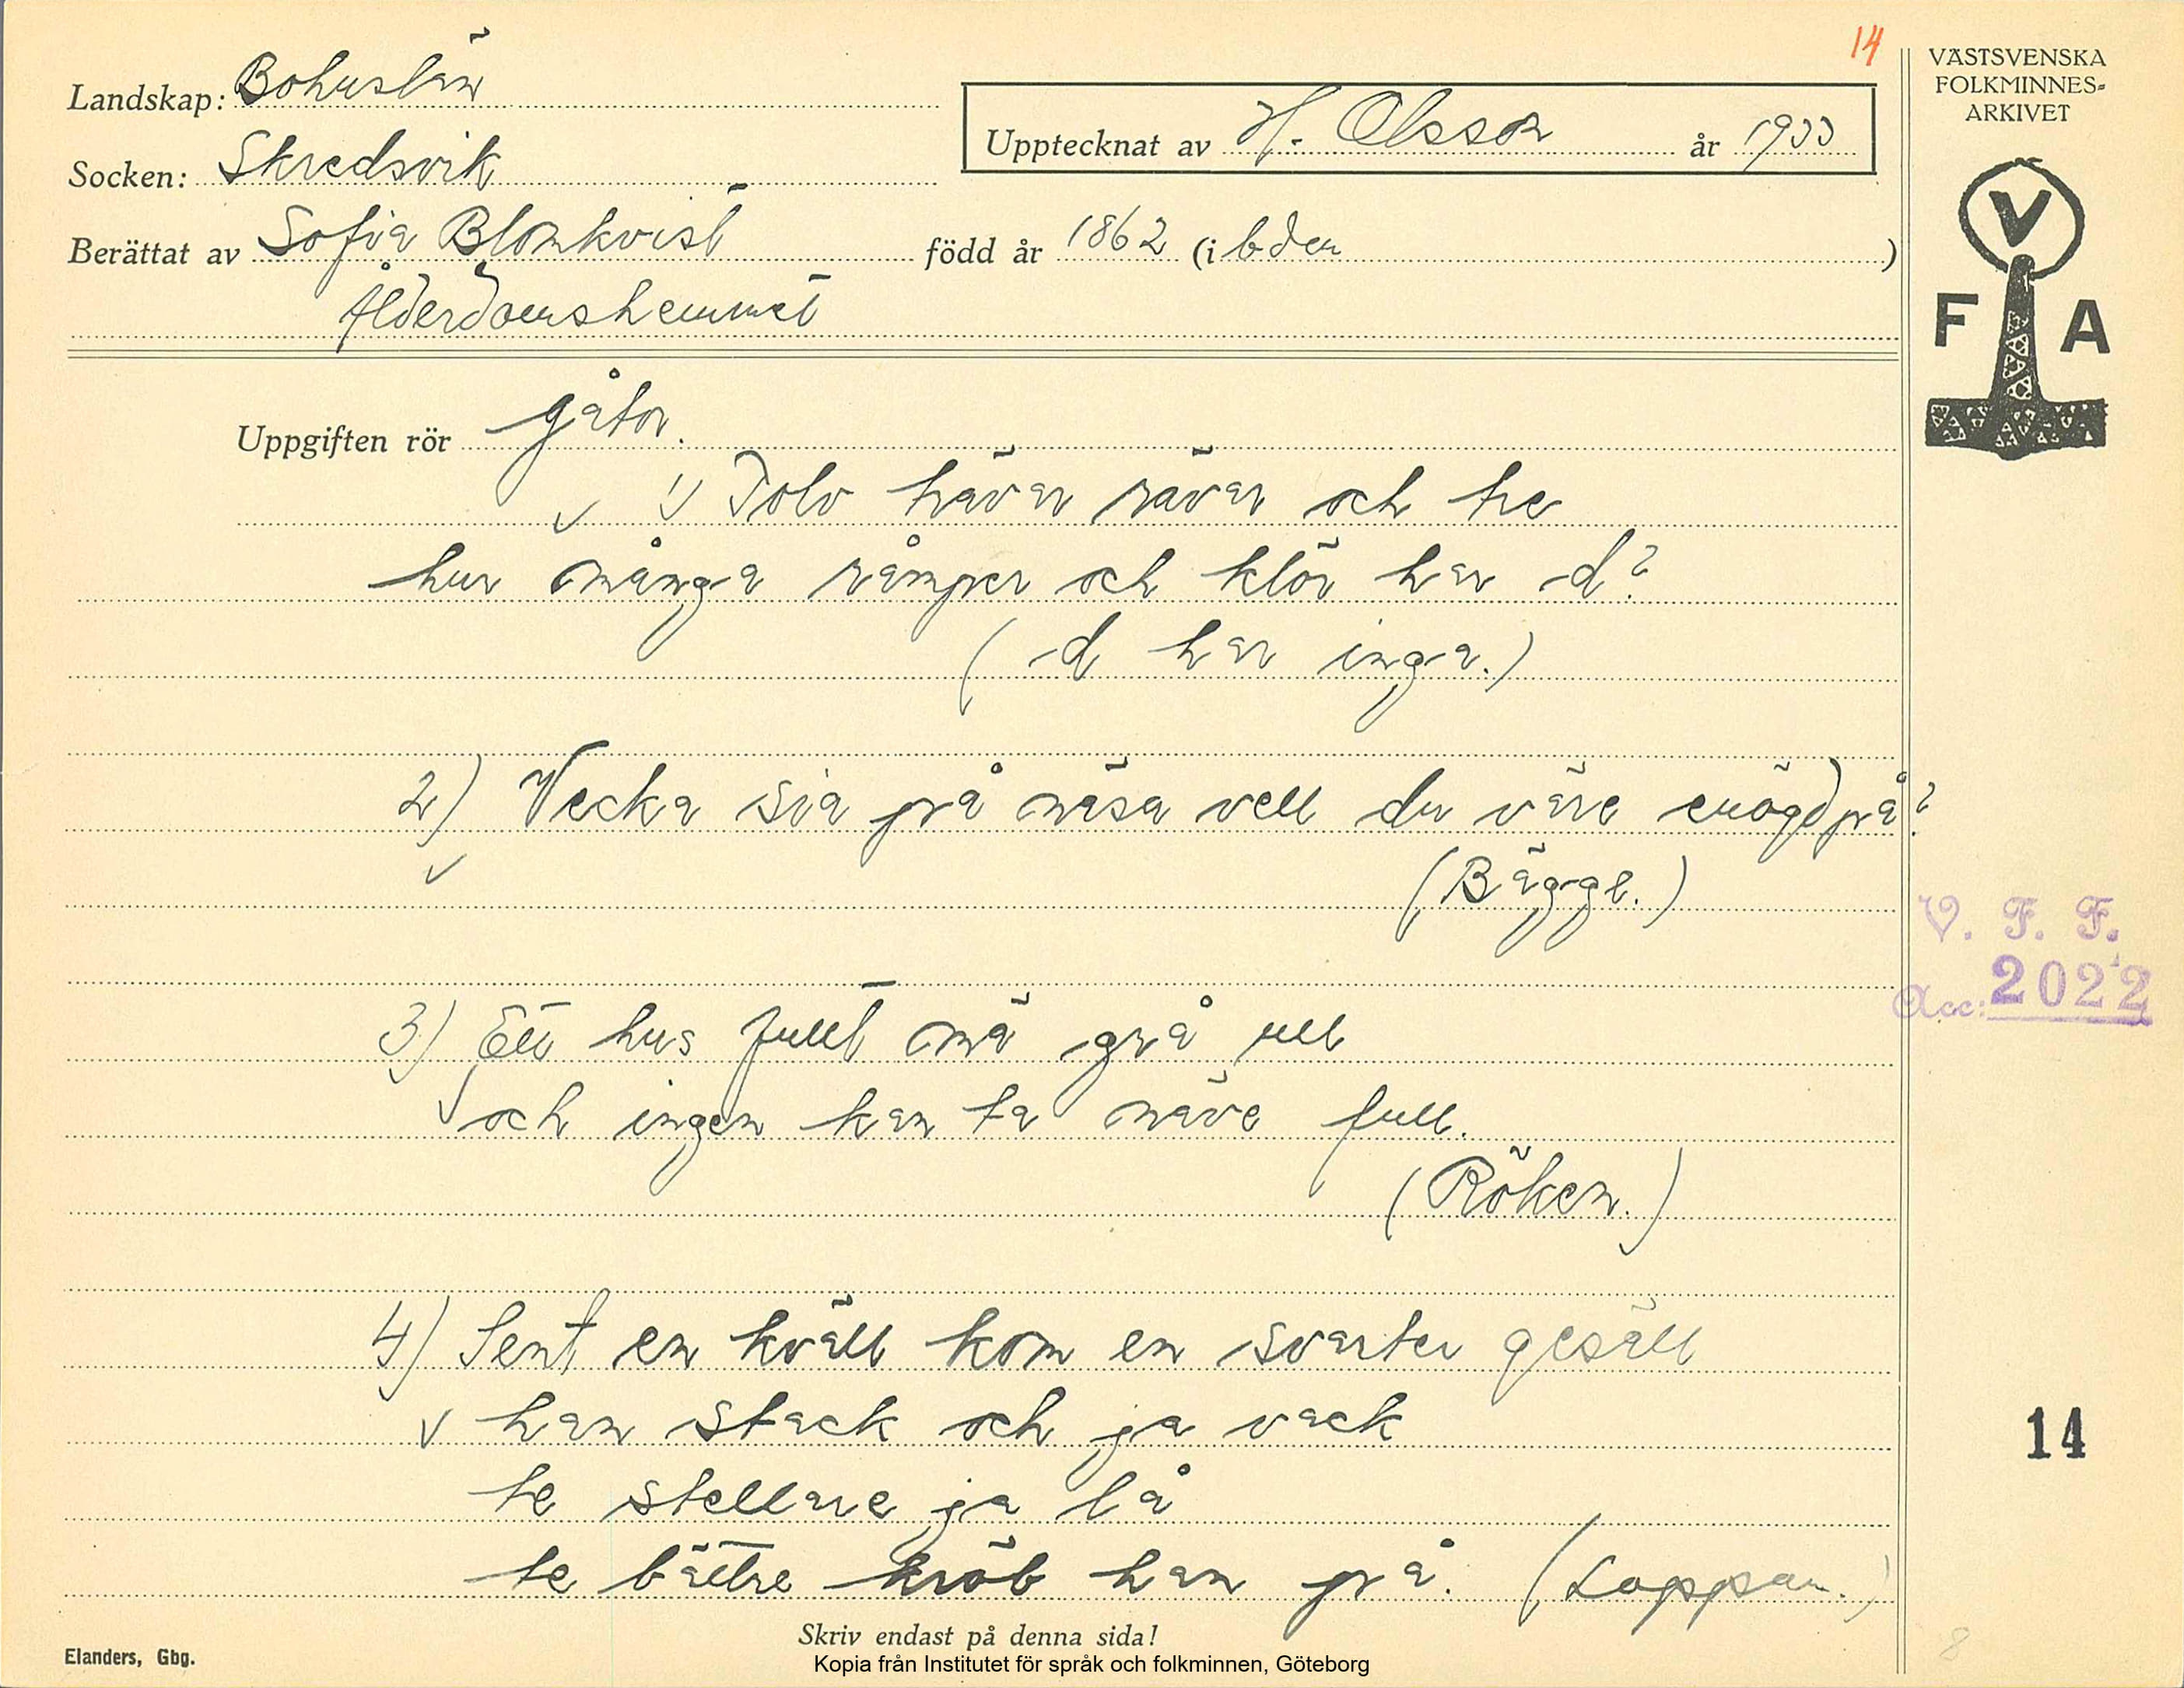 14
Landskap: Bohuslän
Socken: Skredsvik
Upptecknat av H. Olsson år 1933
Berättat av Sofia Blomkvist född år 1862 (i b den )
Ålderdomshemmet
VÄSTSVENSKA
FOLKMINNES-
ARKIVET
V
F A
Uppgiften rör gåtor.
1) Tolv häver räver och tre
hur många rämper och klör har d?
( d har inga.)
2) Vecka sia på näsa vell du väre enögd på?
(Bägge.)
V. F. F.
Acc: 2022
3) Ett hus fullt mä grå ull
och ingen kan ta näve full.
(Röken.)
4) Sent en kväll kom en svarter gesäll
han stack och ja vack
te stellare ja lå
te bättre kröb han på. (Loppan.)
14
Skriv endast på denna sida!
Elanders, Gbg.
Kopia från Institutet för språk och folkminnen, Göteborg
8